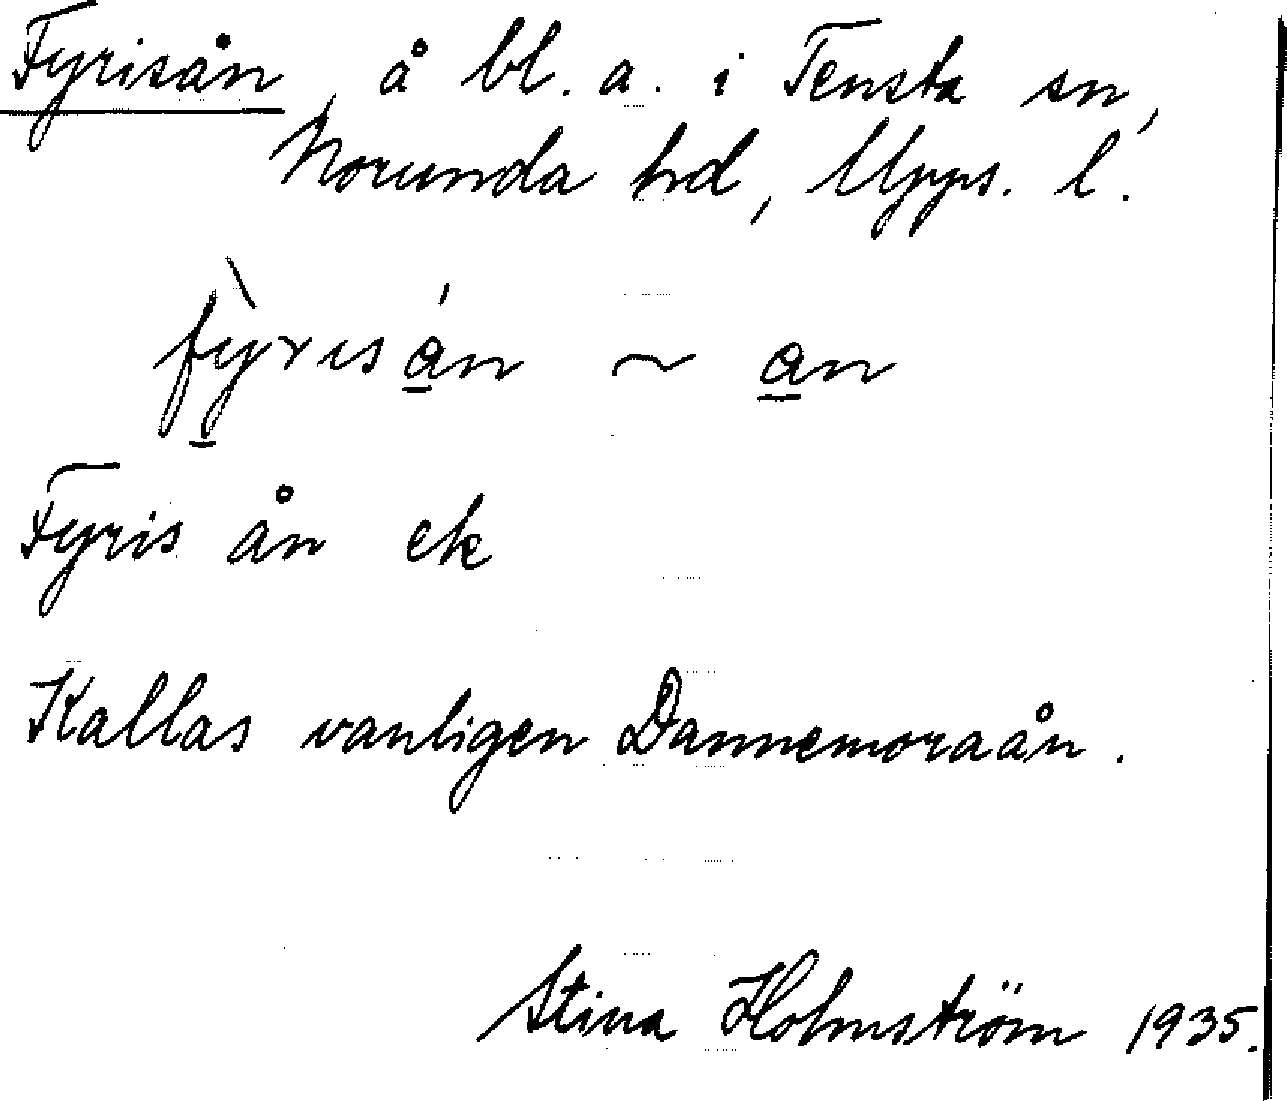 Fyrisån, å bl. a. i Tensta sn,
Norunda hd, Upps. l.
fỳ̠risá̠n ~ a̠n
Fyris ån ek
Kallas vanligen Dannemoraån.
Stina Holmström 1935.